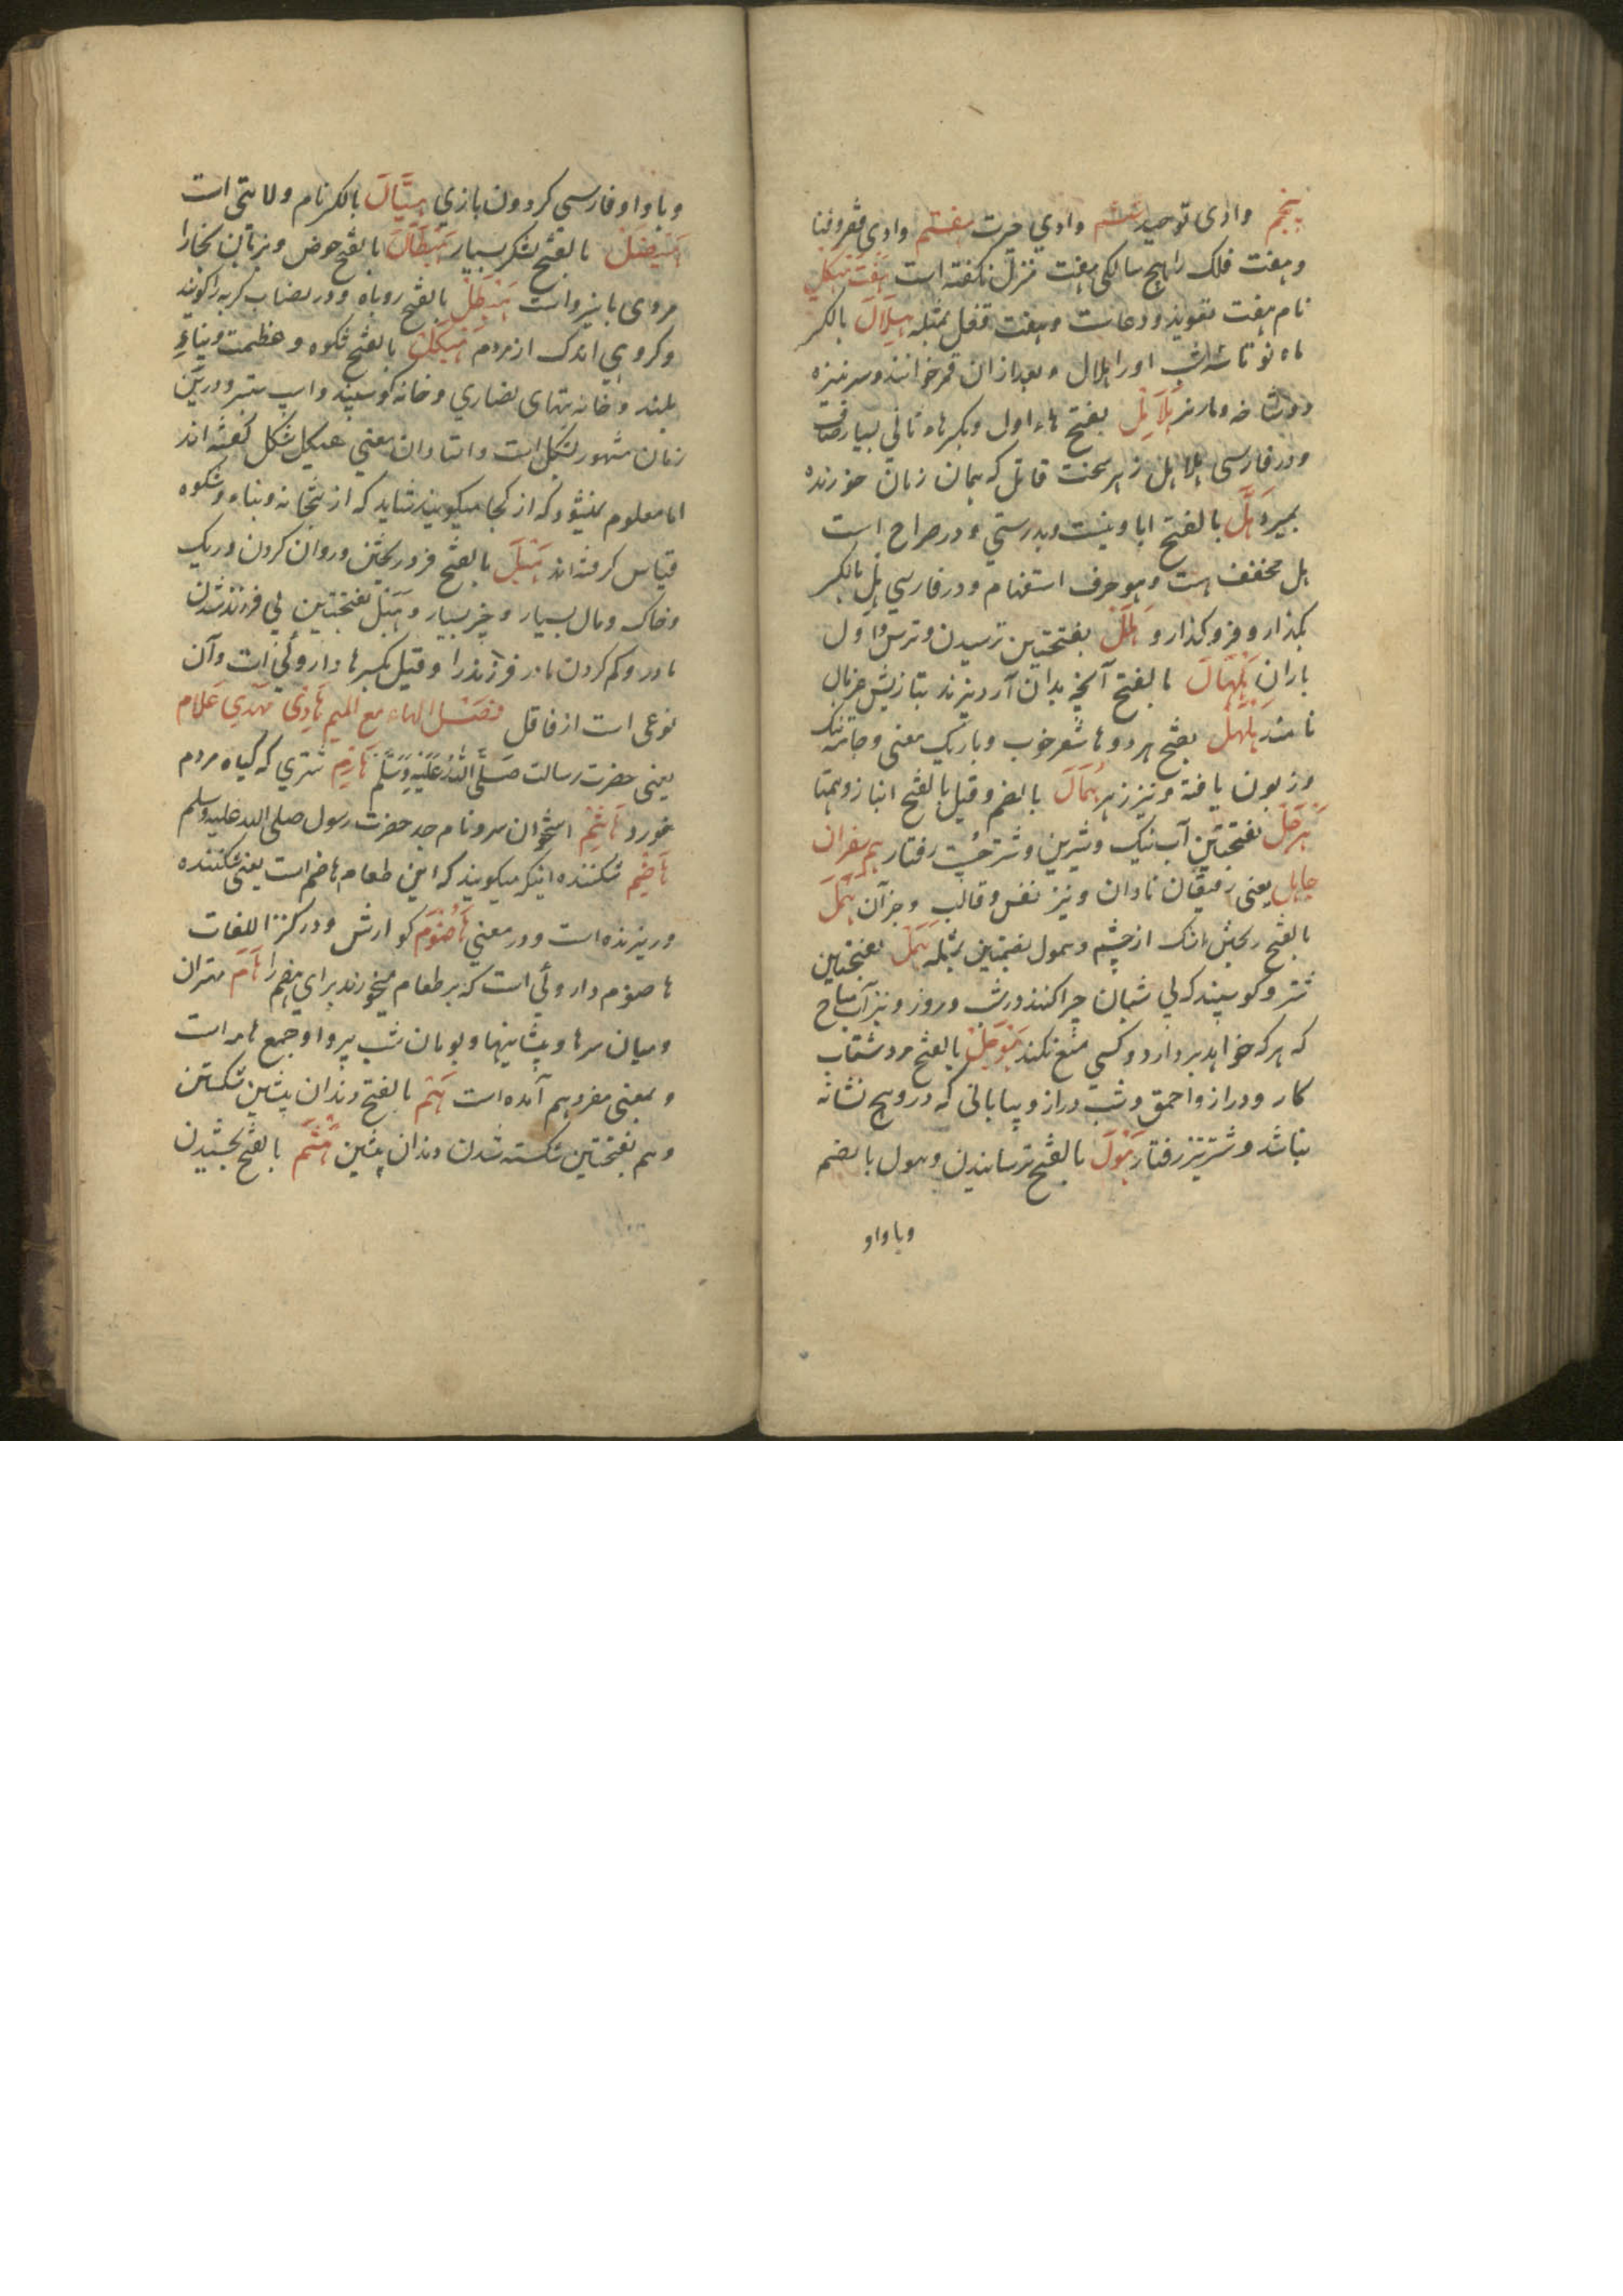 پنجم وادی توحید ششم وادي حیرت هفتم وادي فقر و فنا
و هفت فلک را هیچ سالکی هفت منزل نگفته است هفت هیکل
نام هفت تعویذ و دعاست و هفت قفل بمثله هِلَال بالکسر
ماه نو تا سه شب او را هلال و بعد ازان قمر خوانند و سر نیزه
دو شاخه و مار نر هلاهل بفتح هاء اول و بکسر هاء ثانی بسیار صاف
و در فارسی هلاهل زهر سخت قاتل که همان زمان خورنده
بمیرد هَل بالفتح ایا و نیست و بدرستي و در صراح است
هل مخفف هست و هو حرف استفهام و در فارسي هِل بالکسر
بگذار و فرو گذار و هَلَل بفتحتین ترسیدن و ترس و اول
باران هلهال بالفتح آنچه بدان آرد بیزند بتازیش غربال
نامند هلهل بفتح هر دو ها شعر خوب و باریک معنی و جامه تنک
و زبون بافته و نیز زهر هُمَال بالضم و قیل بالفتح انباز و همتا
هَرجَل بفتحتین آب نیک و شیرین و شتر چست رفتار هم سفران
جاهل یعنی رفیقان نادان و نیز نفس و قالب و جز آن همل
بالفتح ریختن اشک از چشم و همول بضمتین بمثله هَمَل بفتحتین
شتر و گوسپند که بی شبان چرا کنند در شب و روز و نیز آب مباح
که هر که خواهد بردارد و کسي منع نکند هَوجَل بالفتح مرد شتاب
کار و دراز و احمق و شب دراز و بیابانی که درو هیچ نشانه
نباشد و شتر تیز رفتار هَول بالفتح ترسانیدن و هول بالضم
و با واو
و با واو فارسي کردون بازي هیتال بالکسر نام ولایتی است
هیضل بالفتح لشکر بسیار هیطال بالفتح حوض و بزبان بخارا
مردی با نیرو است هیطل بالفتح روباه و در نصاب گربه را گویند
و گروهی اندک از مردم هیکل بالفتح شکوه و عظمت و بناءِ
بلند و خانه بتهای نصاري و خانه گوسپند و اسپ ستبر و درین
زمان مشهور لشکل است و استادان معني هیکل شکل گفته اند
اما معلوم نمیشود که از کجا میگویند شاید که از بتخانه و بناء و شکوه
قیاس گرفته اند هَیل بالفتح فرو ریختن و روان کردن و ریک
و خاک و مال بسیار و چیز بسیار و هبل بفتحتین بی فرزند شدن
مادر و کم کردن مادر فرزند را و قیل بکسر ها داروئی است و آن
نوعی است از قاقل فصل الهاء مع المیم هادِی مهدي غلام
یعنی حضرت رسالت صَلَّی اللهُ عَلَیهِ وَسَلَّم هَارِم شتري که گیاه هرم
خورد هَاشِم استخوان سر و نام جد حضرت رسول صلی الله علیه وسلم
هَاضِم شکننده اینکه میگویند که این طعام هاضم است یعنی شکننده
و ریزنده است و در معني هَاضوم گوارش و در کنز اللغات
هاضوم داروئی است که بر طعام میخورند برای هضم را هام مهتران
و میان سرها و پیشانیها و بومان شب پرو او جمع هامه است
و بمعنی مفرد هم آمده است هَتم بالفتح دندان پیشین شکستن
و هم بفتحتین شکسته شدن دندان پیشین هَثم بالفتح بخشیدن